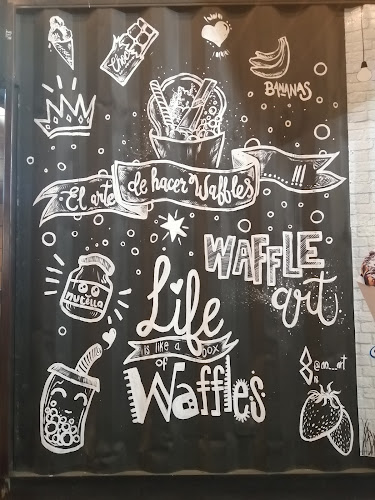 Choco
BANANAS
El arte de hacer Waffles
WAFFLE
art
nutella
Life
is like a box
of
Waffles